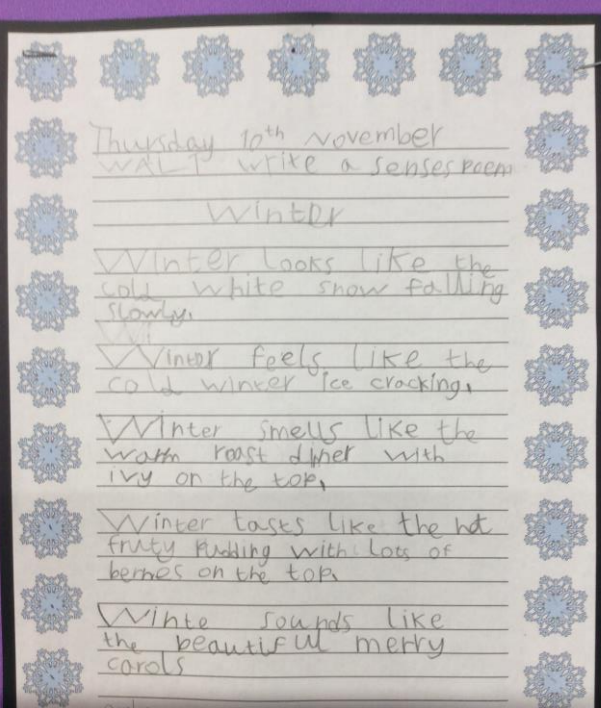 Thursday 10th November
WALT write a senses poem
Winter
Winter looks like the
cold white snow falling
slowly.
Wi
Winter feels like the
cold winter ice cracking.
Winter smells like the
warm roast diner with
ivy on the top.
Winter tasts like the hot
fruty pudding with lots of
berries on the top.
Winte sounds like
the beautiful merry
carols